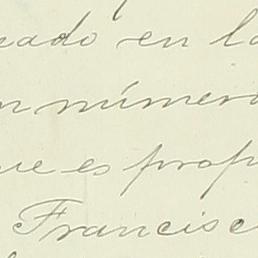 eado en la
n número
ue es prop
Francisc